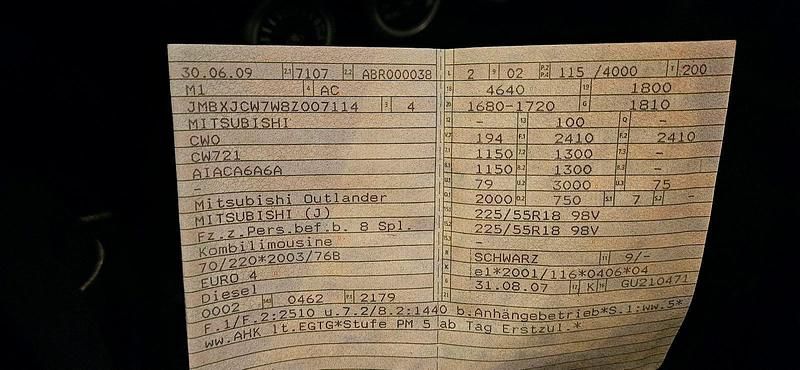 30.06.09 2.1 7107 2.2 ABR000038 L 2 9 02 P.2 P.4 115 /4000 T 200
M1 4 AC 18 4640 19 1800
JMBXJCW7W8Z007114 3 4 20 1680-1720 G 1810
MITSUBISHI 12 - 13 100 Q -
CW0 V.7 194 F.1 2410 F.2 2410
CW721 7.1 1150 7.2 1300 7.3 -
AIACA6A6A 8.1 1150 8.2 1300 8.3 -
- U.1 79 U.2 3000 U.3 75
Mitsubishi Outlander O.1 2000 O.2 750 S.1 7 S.2 -
MITSUBISHI (J) 15.1 225/55R18 98V
Fz.z.Pers.bef.b. 8 Spl. 15.2 225/55R18 98V
Kombilimousine 15.3 -
70/220*2003/76B R SCHWARZ 11 9/-
EURO 4 K e1*2001/116*0406*04
Diesel 6 31.08.07 17 K 16 GU210471
0002 14.1 0462 P.1 2179 21
F.1/F.2:2510 u.7.2/8.2:1440 b.Anhängebetrieb*S.1:ww.5*
ww.AHK lt.EGTG*Stufe PM 5 ab Tag Erstzul.*